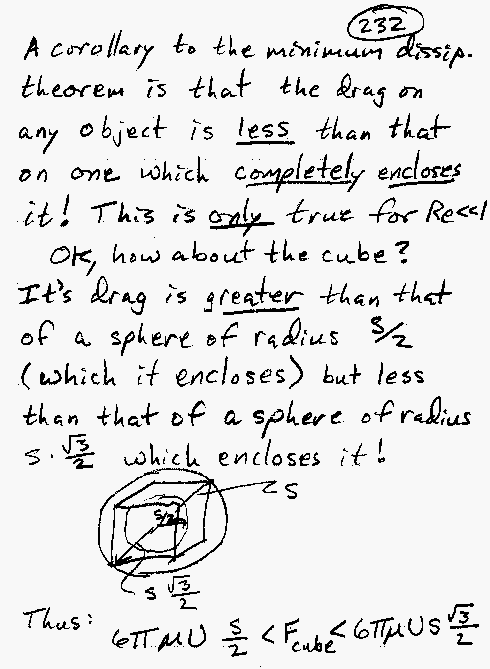 232
A corollary to the minimum dissip.
theorem is that the drag on
any object is less than that
on one which completely encloses
it! This is only true for Re<<1
OK, how about the cube?
It's drag is greater than that
of a sphere of radius S/2
(which it encloses) but less
than that of a sphere of radius
s·√3/2 which encloses it!
S
S/2
s √3/2
Thus: 6πμU s/2 < F_cube < 6πμUs √3/2